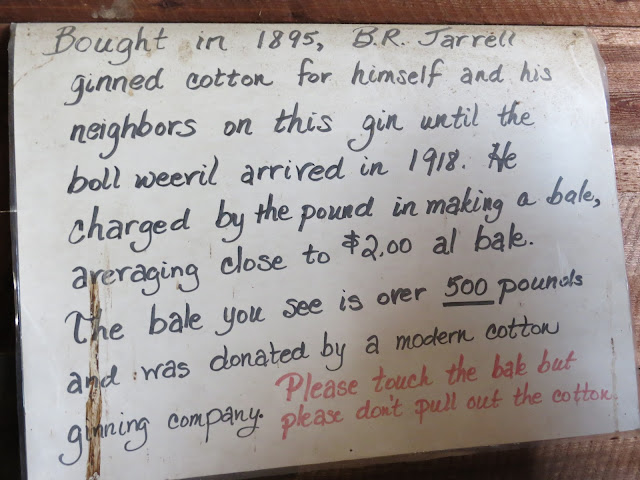 Bought in 1895, B.R. Jarrell
ginned cotton for himself and his
neighbors on this gin until the
boll weevil arrived in 1918. He
charged by the pound in making a bale,
averaging close to $2.00 al bale.
The bale you see is over 500 pounds
and was donated by a modern cotton
ginning company. Please touch the bale but
please don't pull out the cotton.